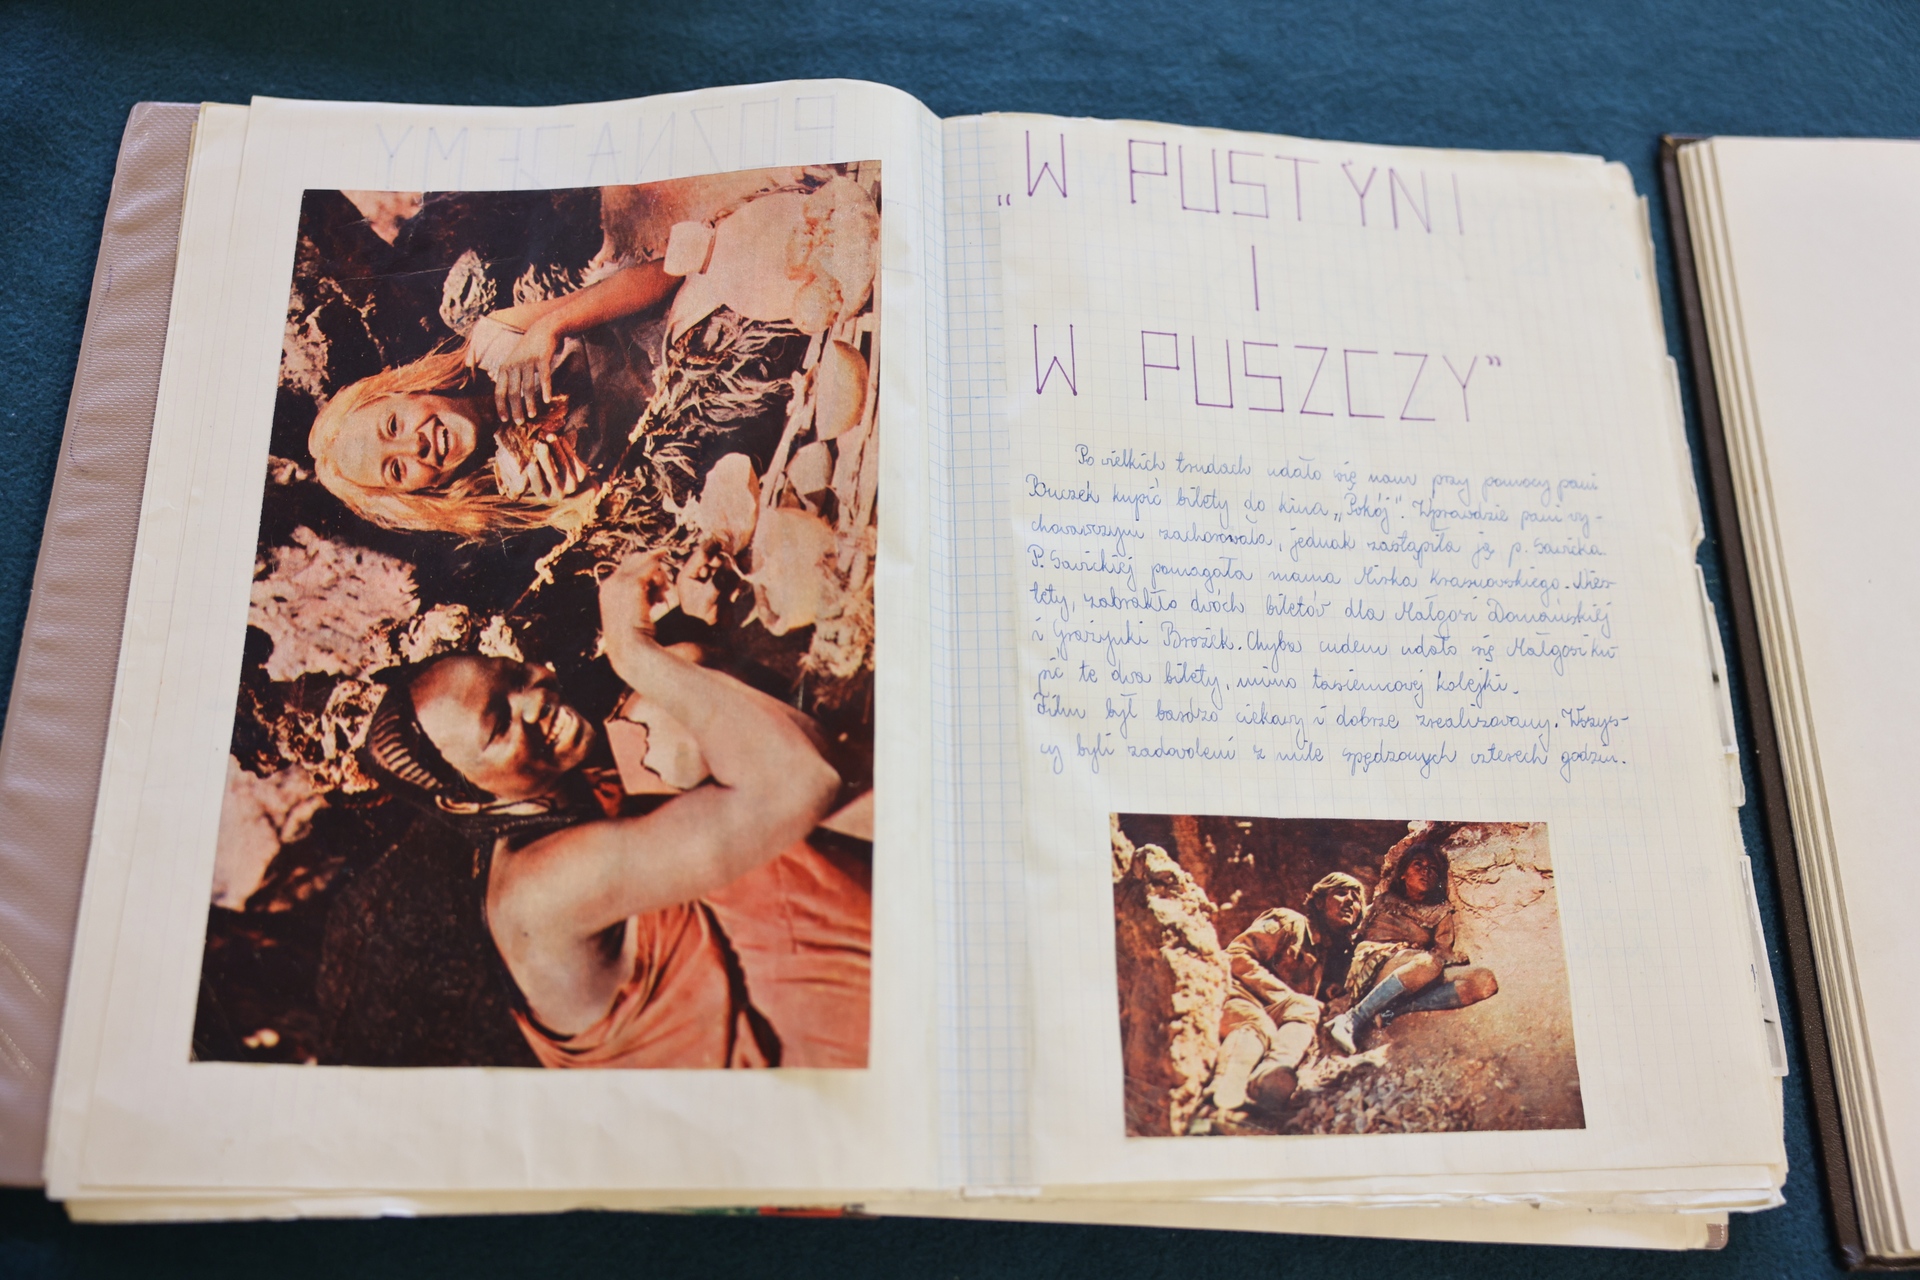 POZNAJEMY
„W PUSTYNI
I
W PUSZCZY”
Po wielkich trudach udało się nam przy pomocy pani
Buczek kupić bilety do kina „Pokój”. Wprawdzie pani wy-
chowawczyni zachorowała, jednak zastąpiła ją p. Sawicka.
P. Sawickiej pomagała mama Mirka Krasnowskiego. Nies-
tety, zabrakło dwóch biletów dla Małgosi Domańskiej
i Grażynki Brożek. Chyba cudem udało się Małgosi ku-
pić te dwa bilety, mimo tasiemcowej kolejki.
Film był bardzo ciekawy i dobrze zrealizowany. Wszys-
cy byli zadowoleni z mile spędzonych czterech godzin.